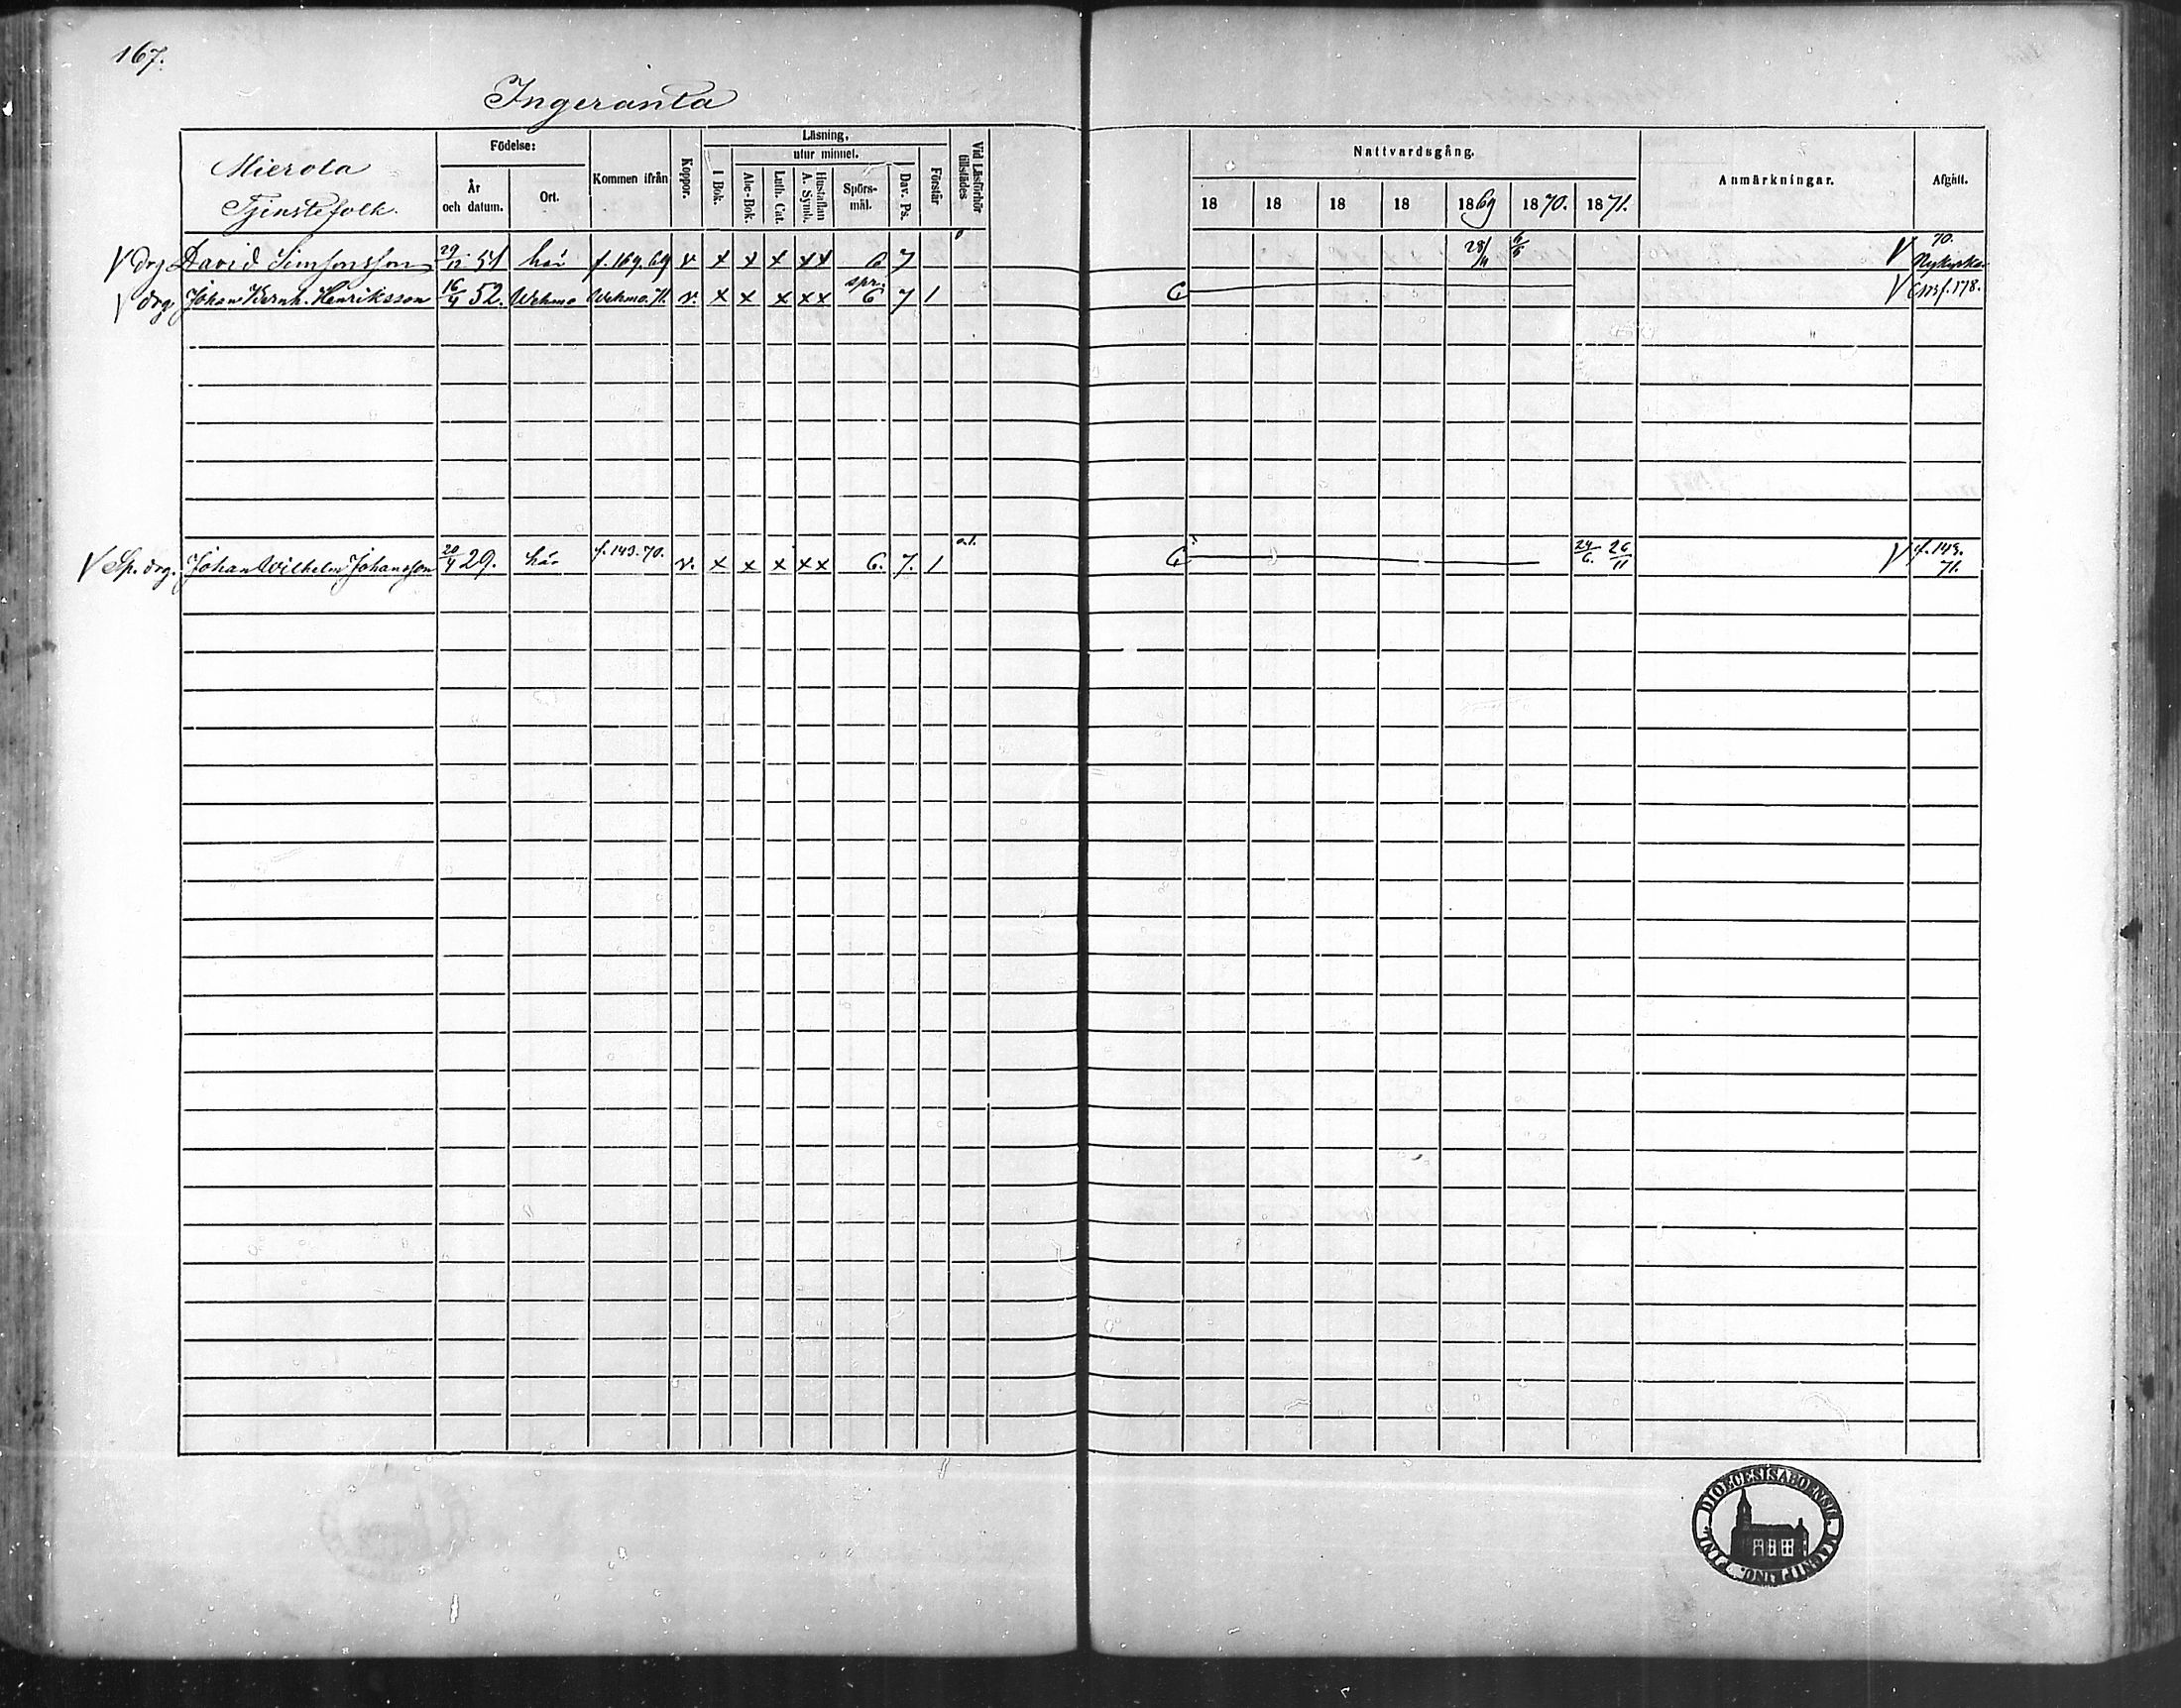 167.
Ingeranta
Mierola
Tjenstefolk.
Födelse:
År och datum.
Ort.
Kommen ifrån
Koppor.
Läsning,
utur minnet.
I Bok.
Abc-Bok.
Luth. Cat.
Hustaflan A. Symb.
Spörsmål.
Dav. Ps.
Förstår
Vid Läsförhör tillstädes
Nattvardsgång.
18 18 18 18 1869 1870. 1871.
Anmärkningar.
Afgått.
V drg David Simsonsson 29/12 51 här f. 169. 69 v x x x x x 6 7 28/11 6/6 V 70. Nykyrka
V drg Johan Bernh. Henriksson 16/4 52. Wehmo Wehmo. 71. v. x x x x x spr. 6 7 1 C V f. 178.
V Sp. drg. Johan Wilhelm Johansson 20/4 29. här f. 143. 70. v. x x x x x 6. 7. 1 a.l. C 24/6. 26/11 V f. 143. 71.
DIOECESIS ABOENSIS. MAGNI PRINC. FINL.